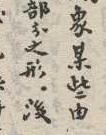 象某些由
部分之形。後